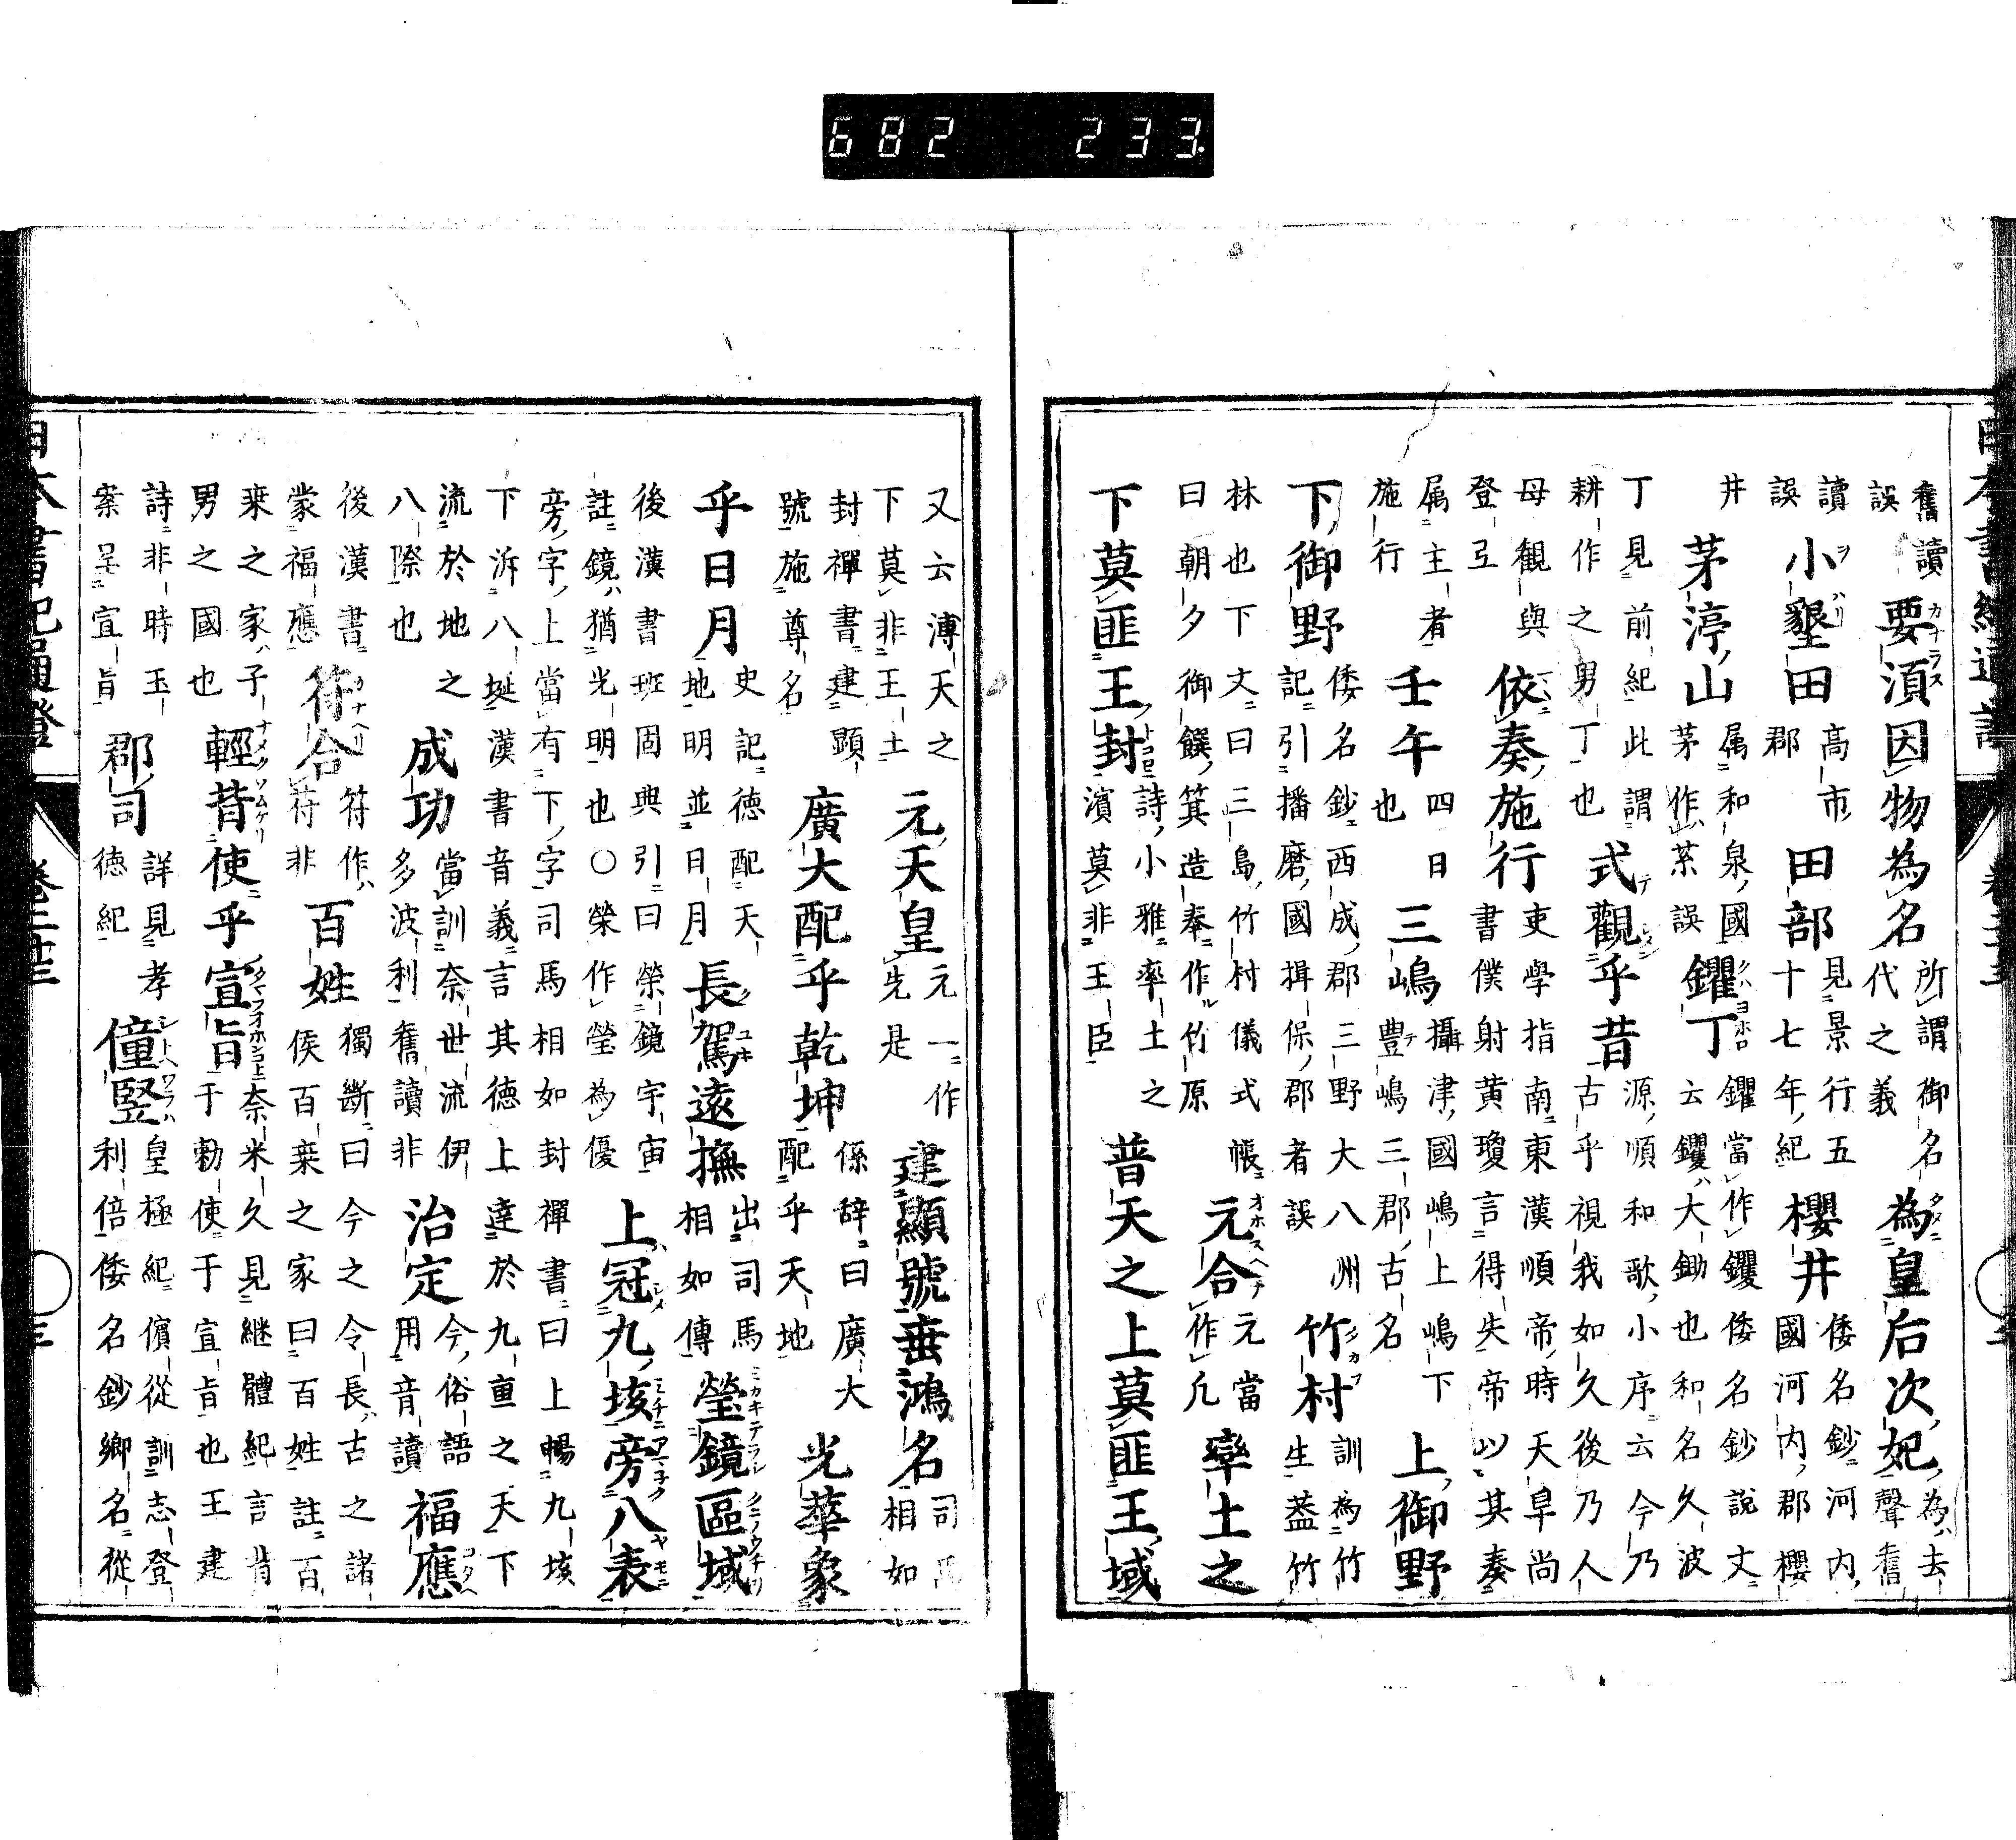 舊讀誤 要湏因物為名 所謂御名代之義 為皇后次妃 為去聲舊
讀誤 小墾田 高市郡 田部 見景行五十七年紀 櫻井 倭名鈔河内國河内郡櫻
井 茅渟山 属和泉國茅作茶誤 钁丁 钁當作钁倭名鈔說文云钁大鋤也和名久波
丁見前紀此謂耕作之男丁也 式觀乎昔 源順和歌小序云今乃古乎視我如久後乃人
母觀與登云 依奏施行 吏學指南東漢順帝時天旱尚書僕射黄瓊言得失帝以其奏
属主者施行 壬午 四日也 三嶋 攝津國嶋上嶋下豊嶋三郡古名 上御野
下御野 倭名鈔西成郡三野大八洲記引播磨國揖保郡者誤 竹村 訓為竹生蓋竹
林也下文曰三島竹村儀式帳曰朝夕御饌箕造奉作竹原 元合 元當作凡 率土之
下莫匪王封 詩小雅率土之濱莫非王臣 普天之上莫匪王域
又云溥天之下莫非王土 元天皇 元一作先是 建顯號垂鴻名 司馬相如
封禪書建顕號施尊名 廣大配乎乾坤 係辞曰廣大配乎天地 光華象
乎日月 史記德配天地明並日月 長駕遠撫 出司馬相如傳 瑩鏡區域
後漢書班固典引曰榮鏡宇宙註鏡猶光明也○榮作瑩為優 上冠九垓旁八表
旁字上當有下字司馬相如封禪書曰上暢九垓下泝八埏漢書音義言其德上達於九重之天下
流於地之八際也 成功 當訓奈世流伊多波利舊讀非 治定 今俗語用音讀 福應
後漢書蒙福應 符合 符作苻非 百姓 獨斷曰今之令長古之諸侯百乗之家曰百姓註百
乗之家子男之國也 輕背使乎宣旨 奈米久見継體紀言背于勅使于宣旨也王建
詩非時玉案呈宣旨 郡司 詳見孝德紀 僮竪 皇極紀儐從訓志登利倍倭名鈔鄉名從